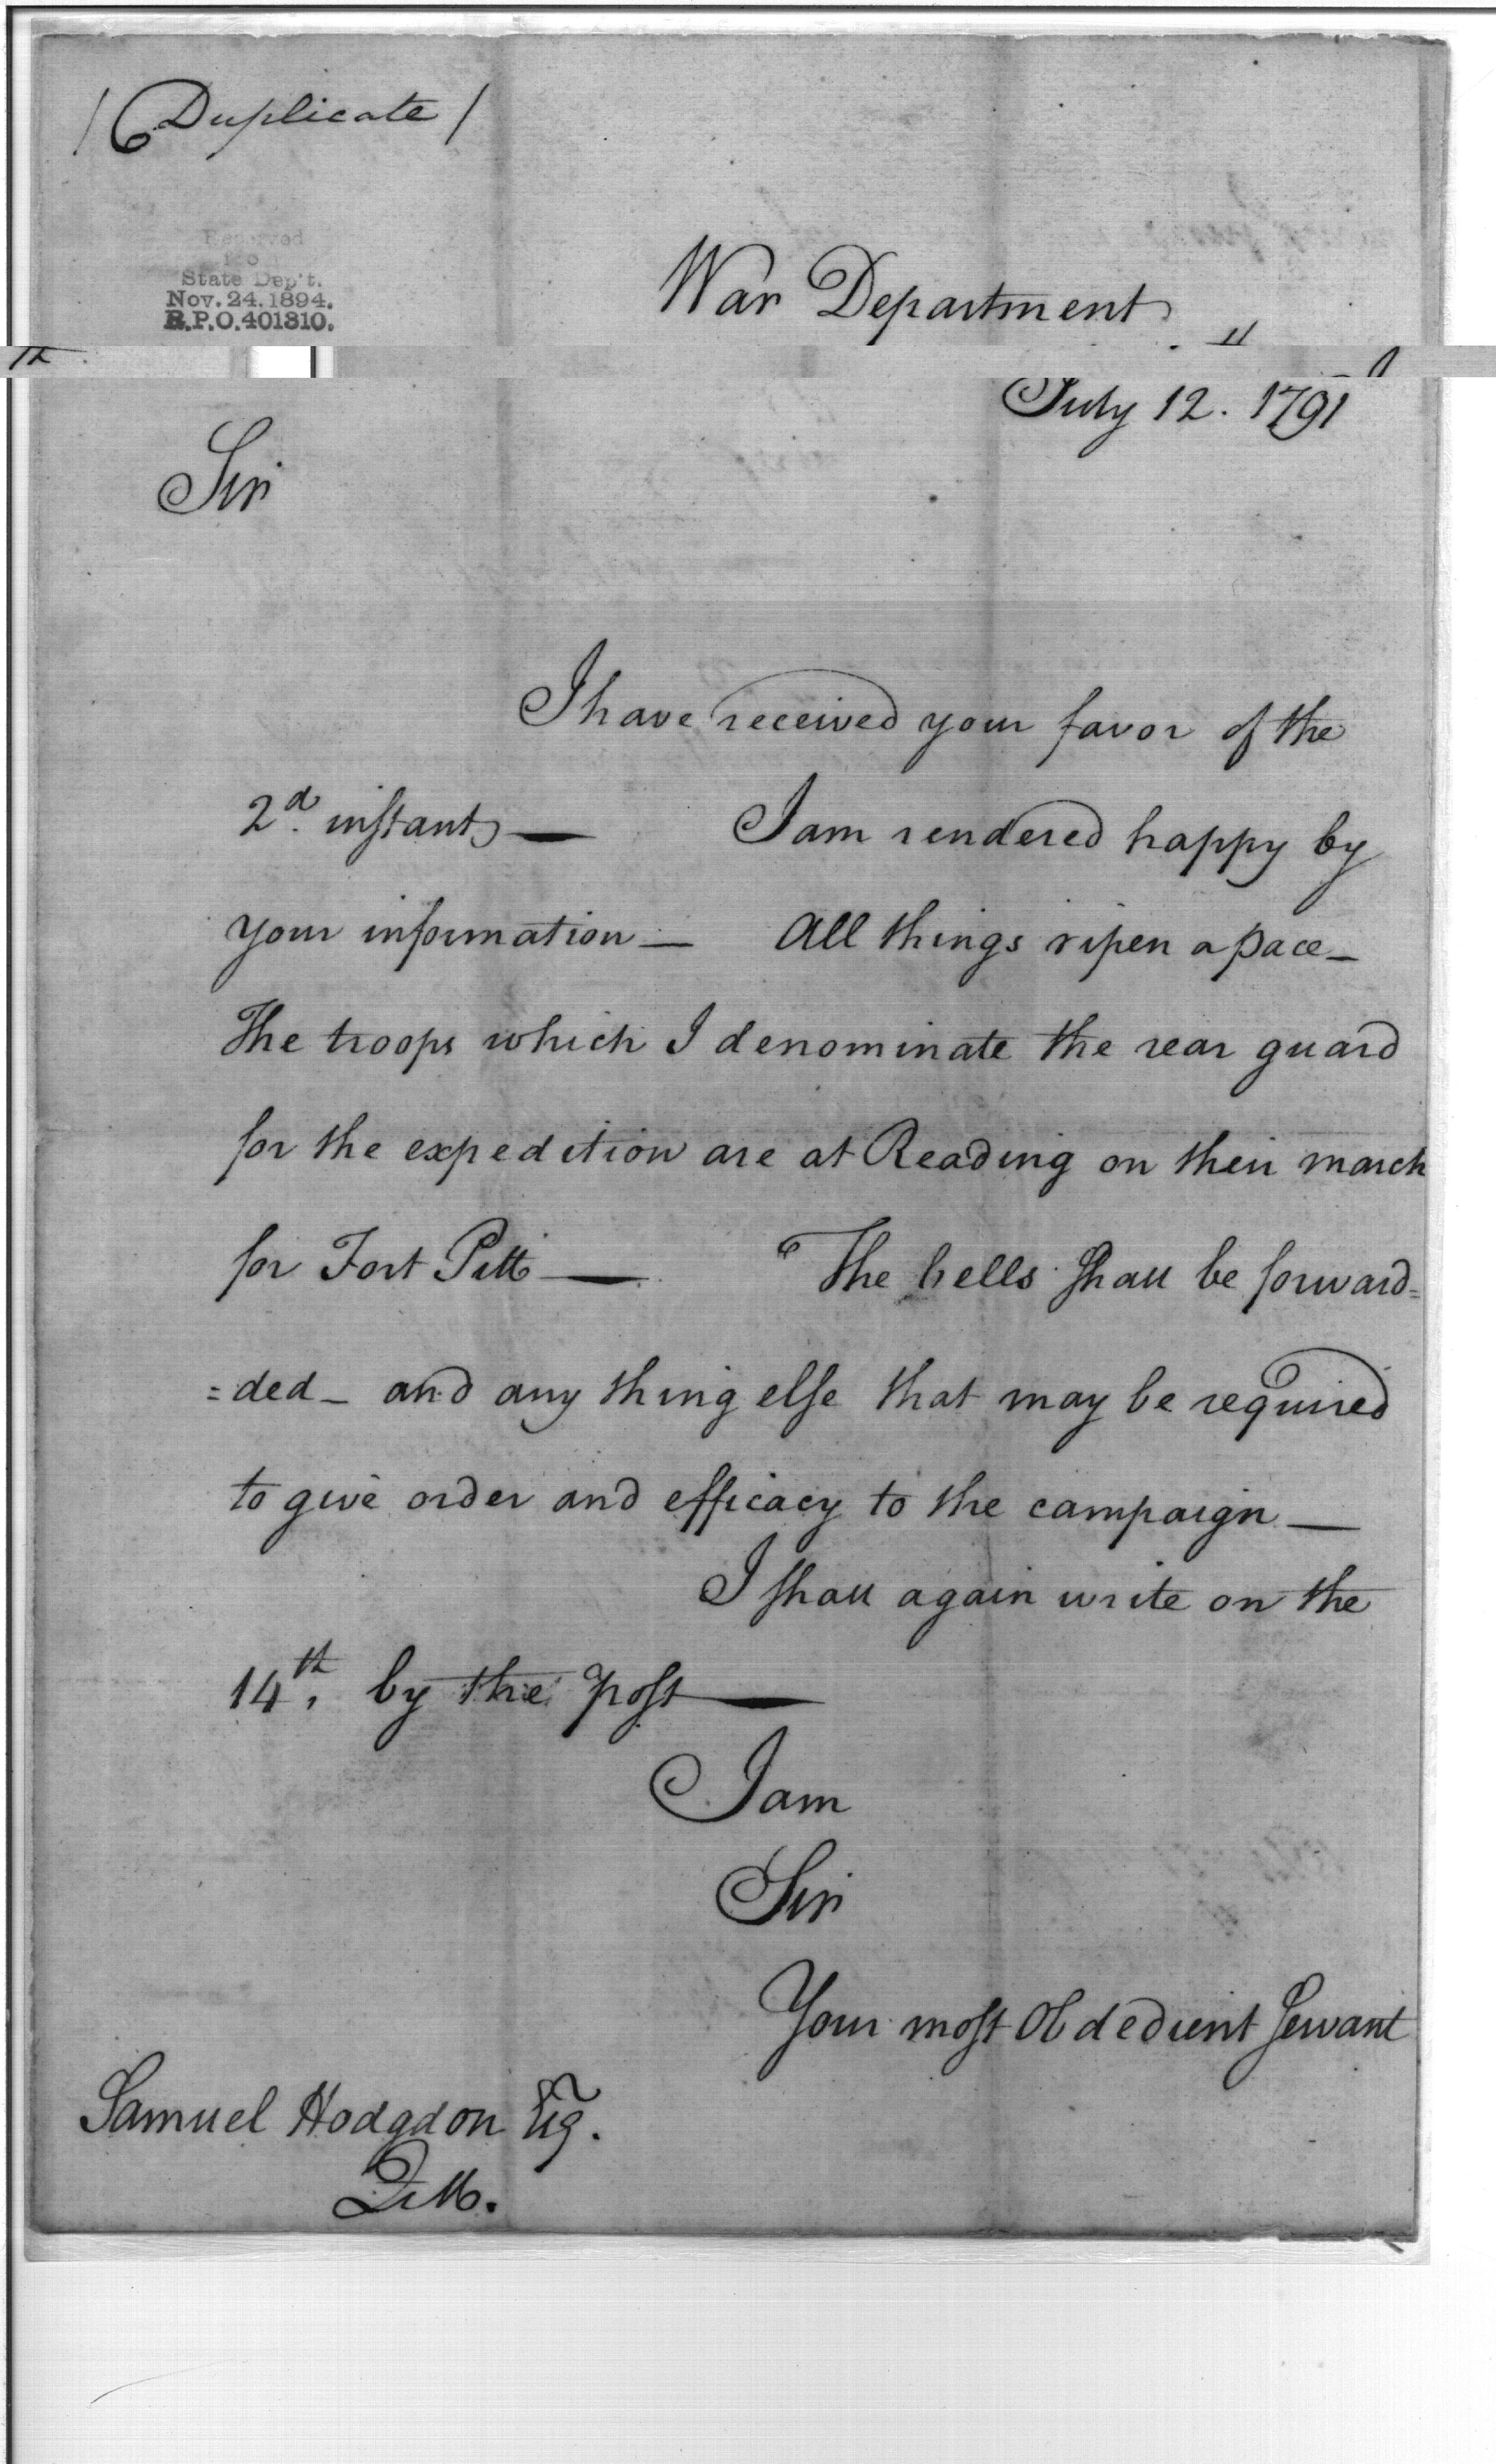 / Duplicate /
Received
State Dep't.
Nov. 24. 1894.
R.P.O. 401310.
War Department
July 12. 1791
Sir
I have received your favor of the
2d. inſtant —
I am rendered happy by
your information — All things ripen apace —
The troops which I denominate the rear guard
for the expedition are at Reading on their march
for Fort Pitt — The bells ſhall be forward=
=ded — and any thing elſe that may be required
to give order and efficacy to the campaign —
I ſhall again write on the
14th. by the poſt —
I am
Sir
Your moſt Obdedient Servant
Samuel Hodgdon Esq.
QM.